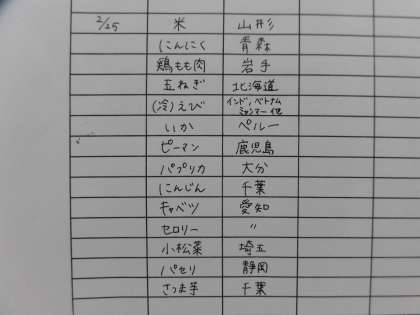 2/25 米 山形
にんにく 青森
鶏もも肉 岩手
玉ねぎ 北海道
(冷)えび インド,ベトナム
ミャンマー他
いか ペルー
ピーマン 鹿児島
パプリカ 大分
にんじん 千葉
キャベツ 愛知
セロリー 〃
小松菜 埼玉
パセリ 静岡
さつま芋 千葉